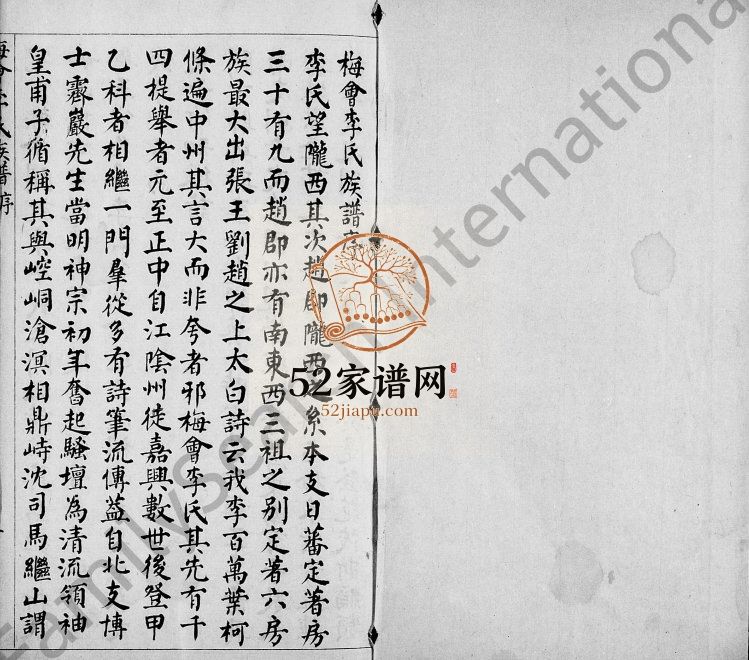 梅會李氏族譜序
李氏望隴西其次趙郡隴西之系本支日蕃定著房
三十有九而趙郡亦有南東西三祖之别定著六房
族最大出張王劉趙之上太白詩云我李百萬葉柯
條遍中州其言大而非夸者邪梅會李氏其先有千
四提舉者元至正中自江陰州徙嘉興數世後登甲
乙科者相繼一門羣從多有詩筆流傳葢自北支博
士霽巖先生當明神宗初年奮起騷壇為清流領袖
皇甫子循稱其與崆峒滄溟相鼎峙沈司馬繼山謂
氏族譜序
52家谱网
52jiapu.com
FamilySearch International